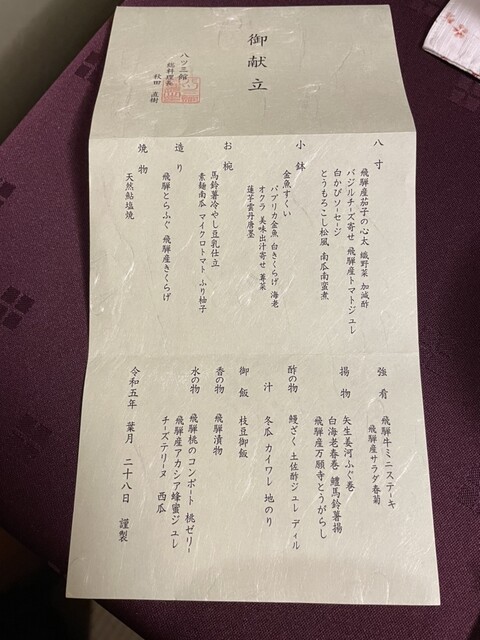 御献立
八ッ三館
総料理長
秋田 直樹
八寸
飛騨産茄子の心太 鐡野菜 加減酢
バジルチーズ寄せ 飛騨産トマトジュレ
白かびソーセージ
とうもろこし松風 南瓜南蛮煮
小鉢
金魚すくい
パプリカ金魚 白きくらげ 海老
オクラ 美味出汁寄せ 蓴菜
蓮芋雲丹唐墨
お椀
馬鈴薯冷やし豆乳仕立
素麺南瓜 マイクロトマト ふり柚子
造り
飛騨とらふぐ 飛騨産きくらげ
焼物
天然鮎塩焼
強肴
飛騨牛ミニステーキ
飛騨産サラダ春菊
揚物
矢生姜河ふぐ巻
白海老春巻 鱧馬鈴薯揚
飛騨産万願寺とうがらし
酢の物
鰻ざく 土佐酢ジュレ ディル
汁
冬瓜 カイワレ 地のり
御飯
枝豆御飯
香の物
飛騨漬物
水の物
飛騨桃のコンポート 桃ゼリー
飛騨産アカシア蜂蜜ジュレ
チーズテリーヌ 西瓜
令和五年 葉月 二十八日 謹製